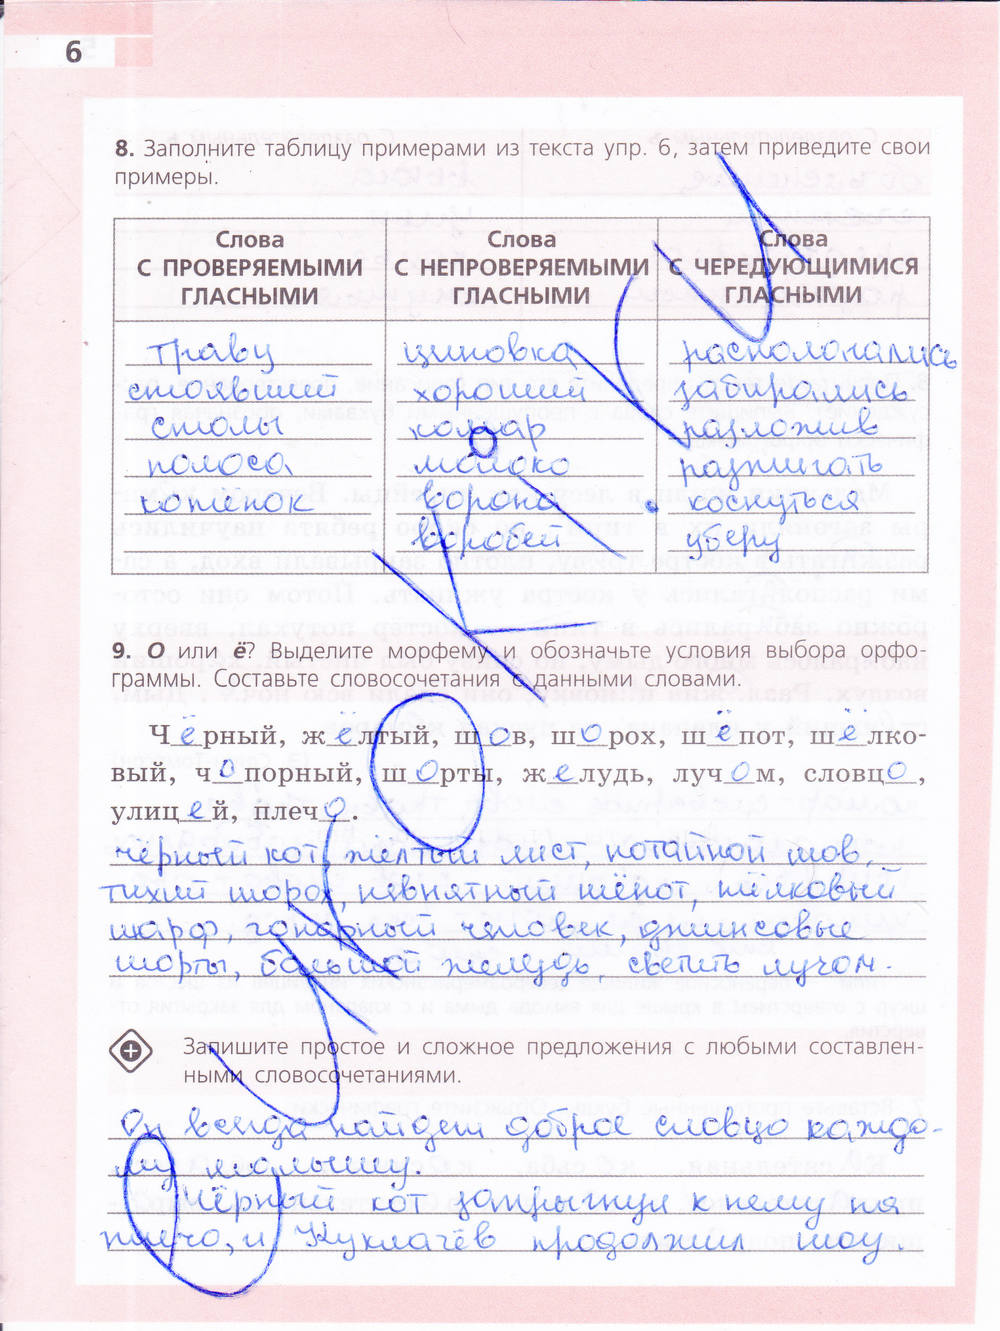 6
8. Заполните таблицу примерами из текста упр. 6, затем приведите свои
примеры.
Слова Слова Слова
С ПРОВЕРЯЕМЫМИ С НЕПРОВЕРЯЕМЫМИ С ЧЕРЕДУЮЩИМИСЯ
ГЛАСНЫМИ ГЛАСНЫМИ ГЛАСНЫМИ
траву циновка распологались
стоявший хороший забирались
столы комар разложив
полоса молоко разжигать
котёнок ворона коснуться
воробей уберу
9. О или ё? Выделите морфему и обозначьте условия выбора орфо-
граммы. Составьте словосочетания с данными словами.
Чёрный, жёлтый, шов, шорох, шёпот, шёлко-
вый, чопорный, шорты, желудь, лучом, словцо,
улицей, плечо.
чёрный кот, жёлтый лист, потайной шов,
тихий шорох, невнятный шёпот, шёлковый
шарф, чопорный человек, джинсовые
шорты, большой желудь, светить лучом.
Запишите простое и сложное предложения с любыми составлен-
ными словосочетаниями.
Он всегда найдет доброе словцо каждо-
му малышу.
Чёрный кот запрыгнул к нему на
плечо, и Куклачёв продолжил шоу.